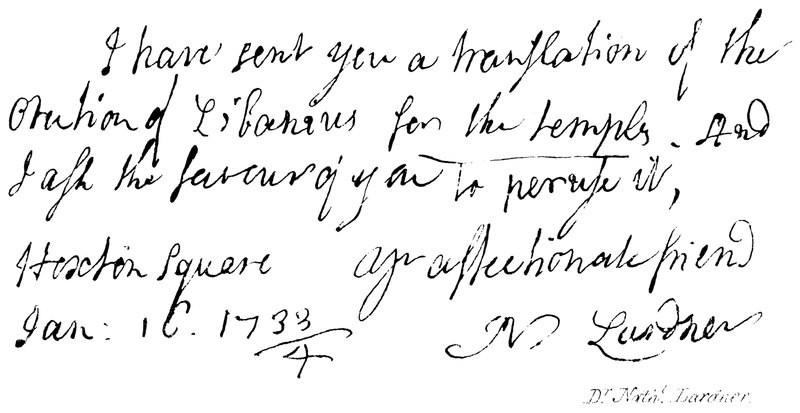 I have sent you a tranſlation of the
Oration of Libanius for the temples. And
I aſk the favour of you to peruſe it,
Hoxton Square yr affectionate friend
Jan: 16. 1733/4 N Lardner
Dr. Nathl. Lardner.